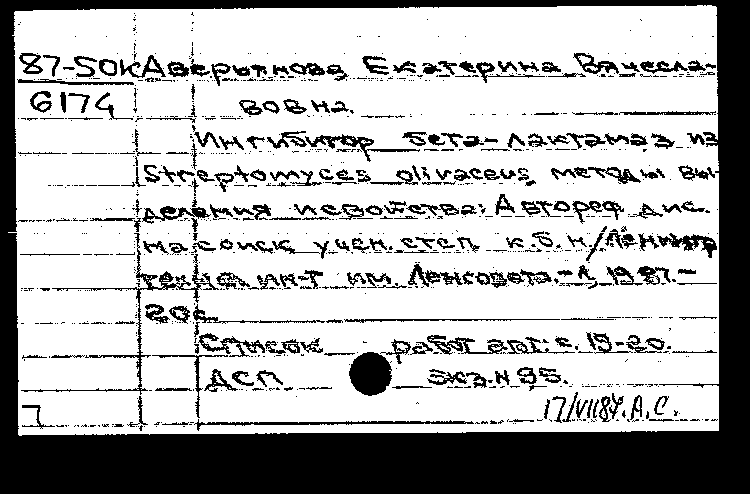 87-50К Аверьянова Екатерина Вячесла-
6174 вовна.
Ингибитор бета-лактамаз из
Streptomyces olivaceus, методы вы-
деления и свойства: Автореф. дис.
на соиск. учен. степ. к.б.н. / Ленингр
технол. ин-т им. Ленсовета. - Л, 1987. -
20с.
Список работ авт: с. 19-20.
ДСП экз. N 95.
17/VII87. А.С.